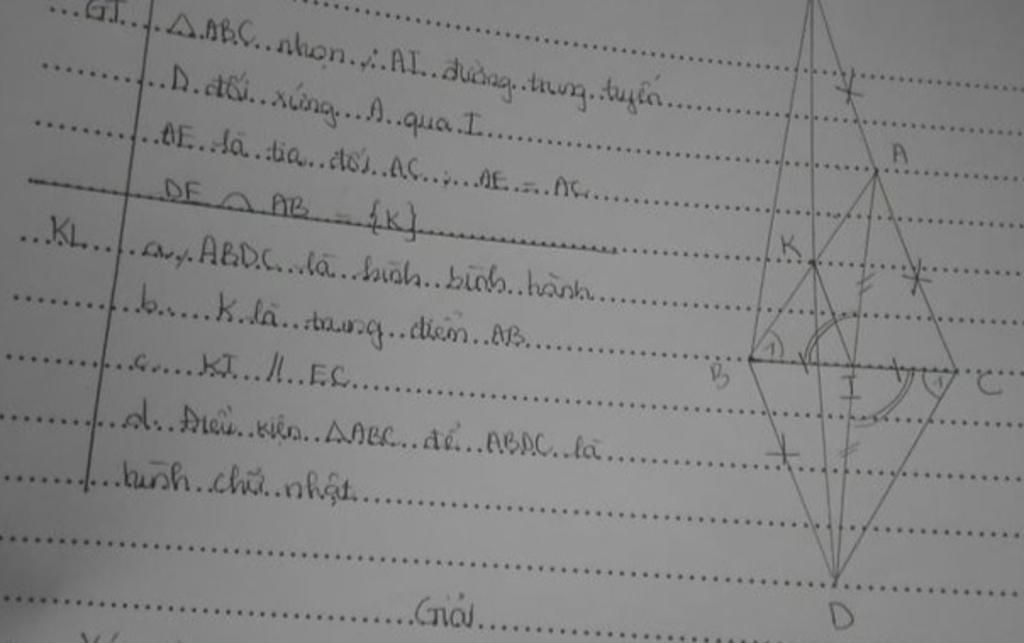 GT △ABC nhọn ; AI đường trung tuyến
D đối xứng A qua I
AE là tia đối AC ; AE = AC
DE ∩ AB = {K}
KL a, ABDC là hình bình hành
b. K là trung điểm AB
c. KI // EC
d. Điều kiện △ABC để ABDC là
hình chữ nhật
Giải
A
K
B 1 I 1 C
D